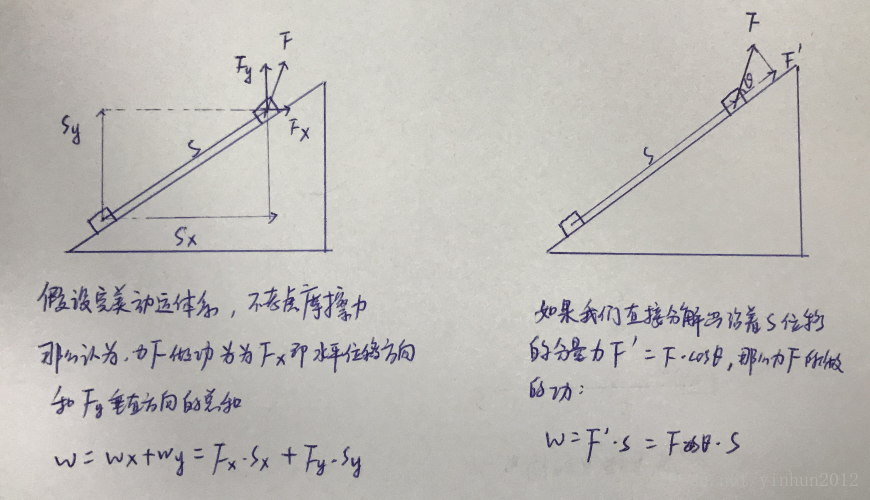 F
Fy
Fx
Sy
S
Sx
假设完美动运体系，不考虑摩擦力
那么认为，力F做功为为Fx即水平位移方向
和Fy垂直方向的总和
W = Wx+Wy = Fx·Sx + Fy·Sy
F
F'
θ
S
如果我们直接分解出沿着S位移
的分量力F' = F·cosθ，那么力F所做
的功：
W = F'·S = Fcosθ·S
net/yinhun2012